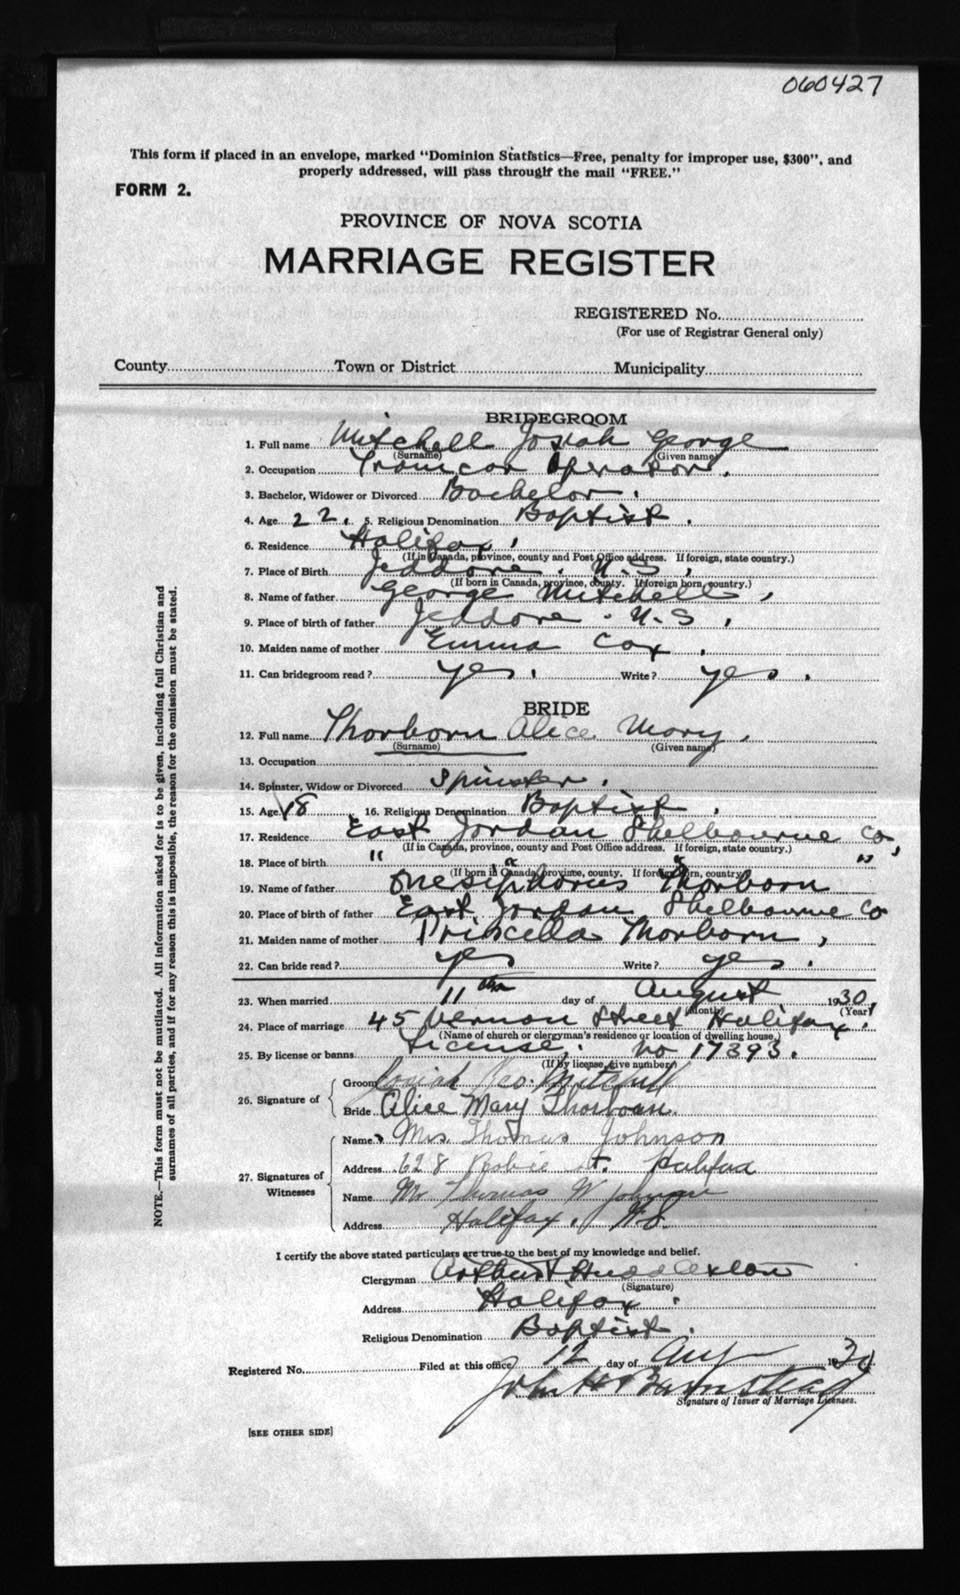 060427
This form if placed in an envelope, marked "Dominion Statistics—Free, penalty for improper use, $300", and
properly addressed, will pass through the mail "FREE."
FORM 2.
PROVINCE OF NOVA SCOTIA
MARRIAGE REGISTER
REGISTERED No.
(For use of Registrar General only)
County Town or District Municipality
BRIDEGROOM
1. Full name Mitchell Josiah George
(Surname) (Given name)
2. Occupation Tramcar Operator.
3. Bachelor, Widower or Divorced Bachelor.
4. Age 22. 5. Religious Denomination Baptist.
6. Residence Halifax,
(If in Canada, province, county and Post Office address. If foreign, state country.)
7. Place of Birth Jeddore. N.S.
(If born in Canada, province, county. If foreign born, country.)
8. Name of father George Mitchell,
9. Place of birth of father Jeddore. N.S,
10. Maiden name of mother Emma Cox.
11. Can bridegroom read? yes. Write? yes.
BRIDE
12. Full name Thorborn Alice Mary.
(Surname) (Given name)
13. Occupation
14. Spinster, Widow or Divorced Spinster.
15. Age 18 16. Religious Denomination Baptist.
17. Residence East Jordan Shelbourne Co,
(If in Canada, province, county and Post Office address. If foreign, state country.)
18. Place of birth " " " "
(If born in Canada, province, county. If foreign born, country.)
19. Name of father Onesiphorus Thorborn
20. Place of birth of father East Jordan Shelbourne Co
21. Maiden name of mother Priscella Thorborn,
22. Can bride read? yes Write? yes.
23. When married 11th day of August 1930,
(Month) (Year)
24. Place of marriage 45 Vernon Street Halifax.
(Name of church or clergyman's residence or location of dwelling house.)
25. By license or banns License. No 17393.
(If by license, give number)
26. Signature of
Groom Josiah Geo. Mitchell
Bride Alice Mary Thorboan.
27. Signatures of
Witnesses
Name Mrs Thomas Johnson
Address 628 Robie St. Halifax
Name Mr Thomas W Johnson
Address Halifax, N.S.
I certify the above stated particulars are true to the best of my knowledge and belief.
Clergyman Arthur
(Signature)
Address Halifax.
Religious Denomination Baptist.
Registered No. Filed at this office 12 day of Aug 1930
John H Barnstead
Signature of Issuer of Marriage Licenses.
[SEE OTHER SIDE]
NOTE.—This form must not be mutilated. All information asked for is to be given, including full Christian and
surnames of all parties, and if for any reason this is impossible, the reason for the omission must be stated.